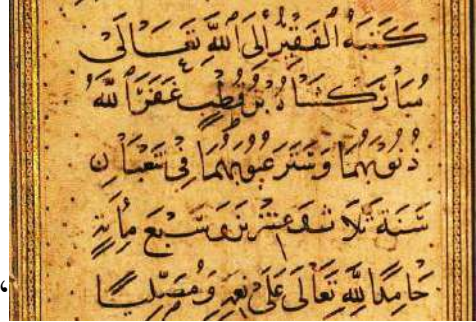 كتبه الفقير إلى الله تعالى
مباركشاه بن قطب غفر الله
ذنوبهما وستر عيوبهما في شعبان
سنة ثلاث وعشرين وسبع مائة
حامدا لله تعالى على نعمه ومصليا